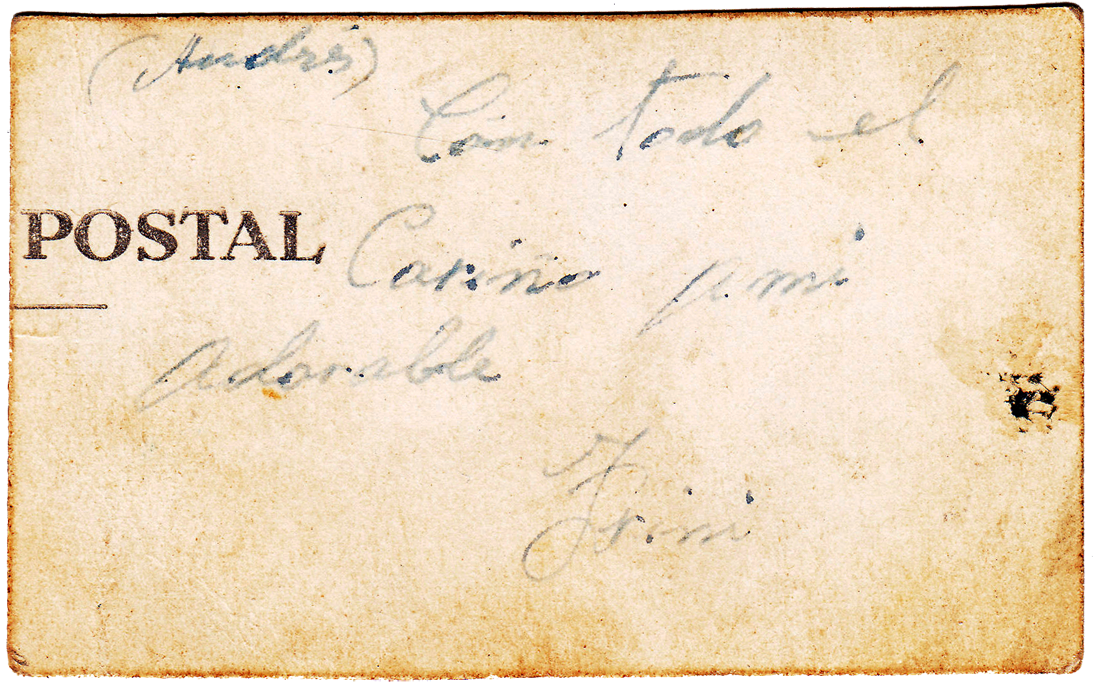 (Andrés)
Con todo el
POSTAL
Cariño a mi
adorable
Trini